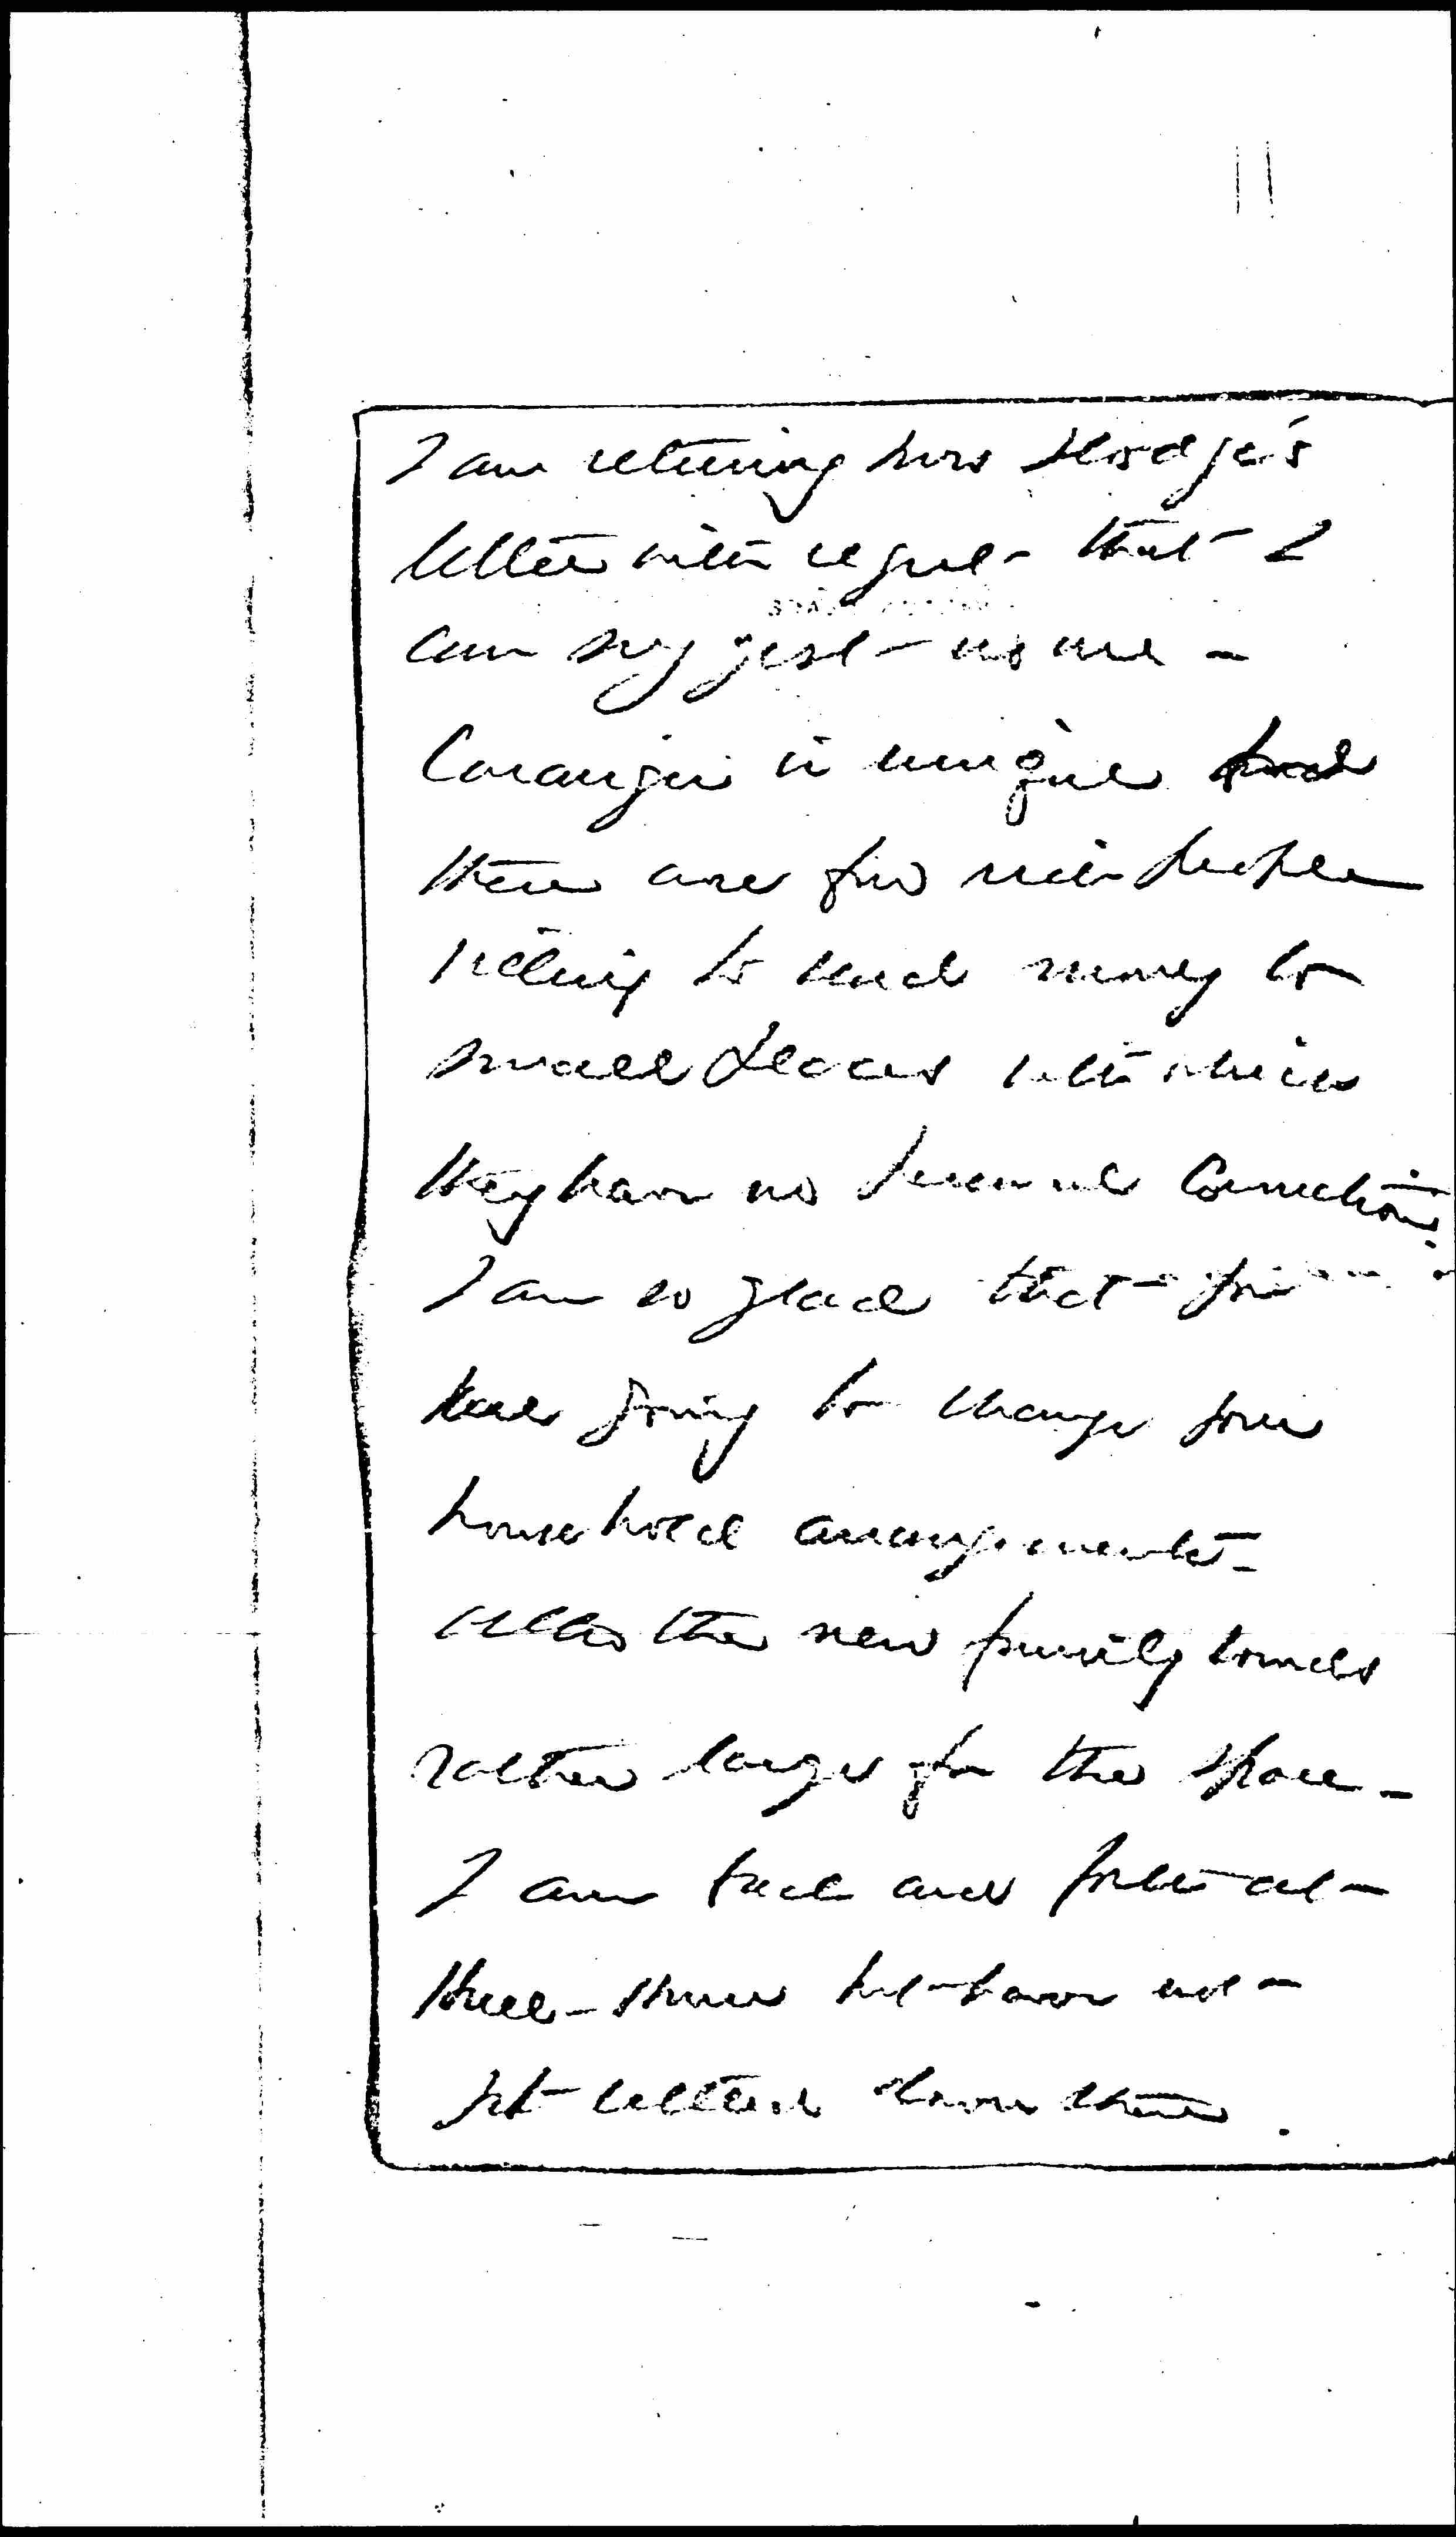 I am returning Mrs Hodge's
letter with regret that I
can suggest no one -
Carnegie is unique and
there are few rich people
willing to send money to
small places with which
they have no personal connection.
I am so glad that you
are going to change your
household arrangements -
the new family sounds
rather large for the space -
I am back and forth at
but have not
yet settled down there.